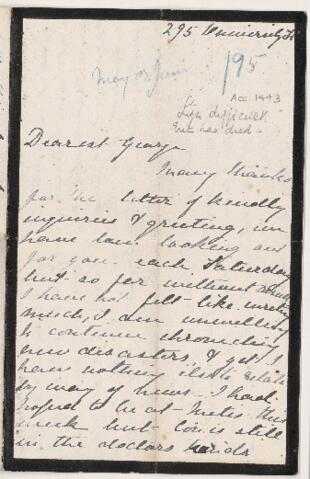 295 University St
May or June /95
Acc. 1443
Life difficult
Eric has died.
Dearest George
Many thanks
for the letter of kindly
inquiries & greeting, we
have been looking out
for you each Saturday
but so far without
I have not felt like writing
much, I am unwilling
to continue chronicling
new disasters, & yet I
have nothing else to relate
by way of news. I had
hoped to be at Metis this
week but Con is still
in the doctors hands